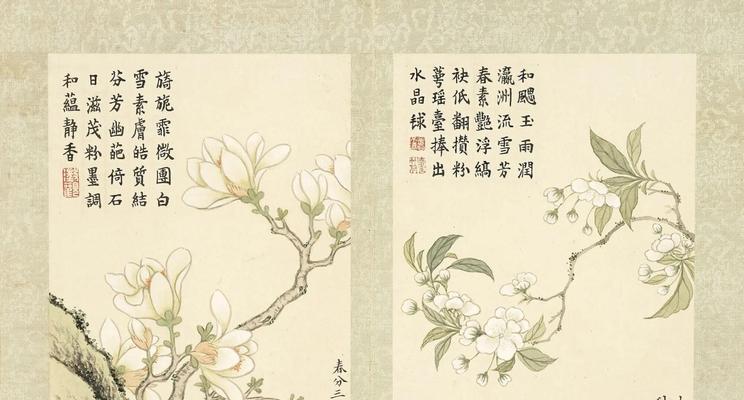 和颸玉雨潤
瀛洲流雪芳
春素艷浮縞
袂低翻攢粉
萼瑶臺捧出
水晶毬
旖旎霏微團白
雪素膚皓質結
芬芳幽葩倚石
日滋茂粉墨調
和蘊静香
春分三